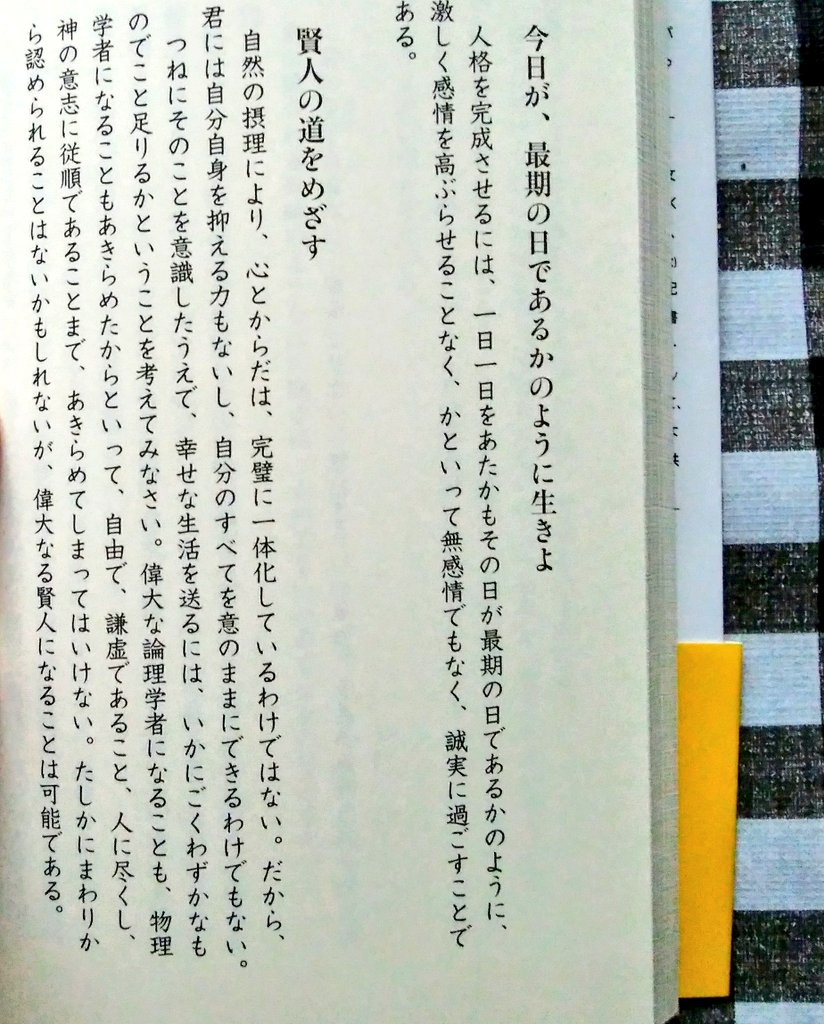 今日が、最期の日であるかのように生きよ
人格を完成させるには、一日一日をあたかもその日が最期の日であるかのように、
激しく感情を高ぶらせることなく、かといって無感情でもなく、誠実に過ごすことで
ある。
賢人の道をめざす
自然の摂理により、心とからだは、完璧に一体化しているわけではない。だから、
君には自分自身を抑える力もないし、自分のすべてを意のままにできるわけでもない。
つねにそのことを意識したうえで、幸せな生活を送るには、いかにごくわずかなも
のでこと足りるかということを考えてみなさい。偉大な論理学者になることも、物理
学者になることもあきらめたからといって、自由で、謙虚であること、人に尽くし、
神の意志に従順であることまで、あきらめてしまってはいけない。たしかにまわりか
ら認められることはないかもしれないが、偉大なる賢人になることは可能である。